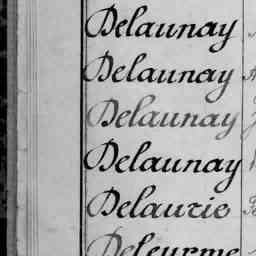 Delaunay
Delaunay
Delaunay
Delaunay
Delaurie
Deleurme